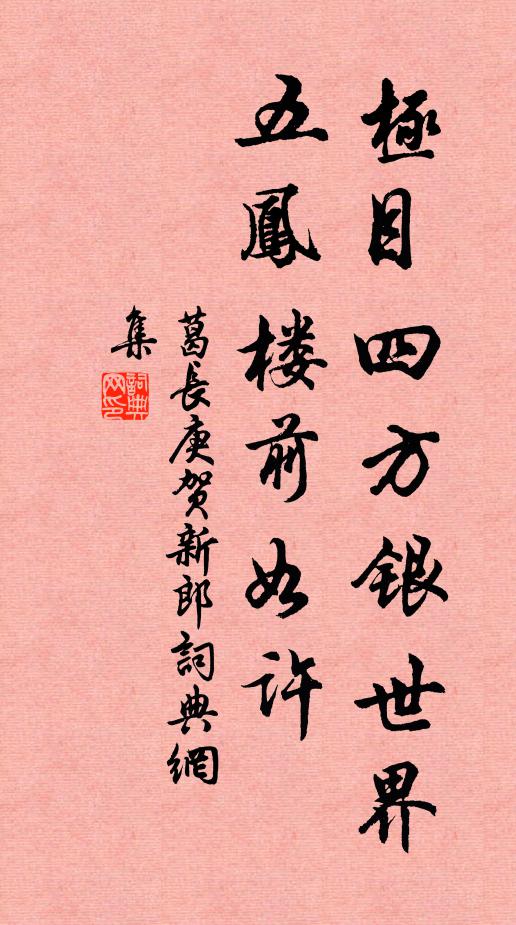 極目四方銀世界
五鳳楼前如許
葛長庚贺新郎詞典網
集
詞典
网印